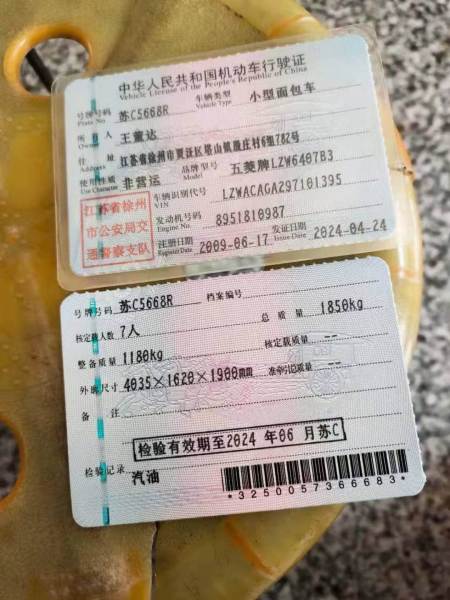 中华人民共和国机动车行驶证
Vehicle License of the People's Republic of China
号牌号码 Plate No. 苏C5668R 车辆类型 Vehicle Type 小型面包车
所有人 Owner 王董达
住址 Address 江苏省徐州市贾汪区塔山镇殷庄村6组782号
使用性质 Use Character 非营运 品牌型号 Model 五菱牌LZW6407B3
江苏省徐州市公安局交通警察支队
车辆识别代号 VIN LZWACAGA297101395
发动机号码 Engine No. 8951810987
注册日期 Register Date 2009-06-17 发证日期 Issue Date 2024-04-24
号牌号码 苏C5668R 档案编号
核定载人数 7人 总质量 1850kg
整备质量 1180kg 核定载质量 --
外廓尺寸 4035×1620×1900 准牵引总质量 --
备注
检验有效期至2024 年06 月苏C
检验记录 汽油
*3250057366683*